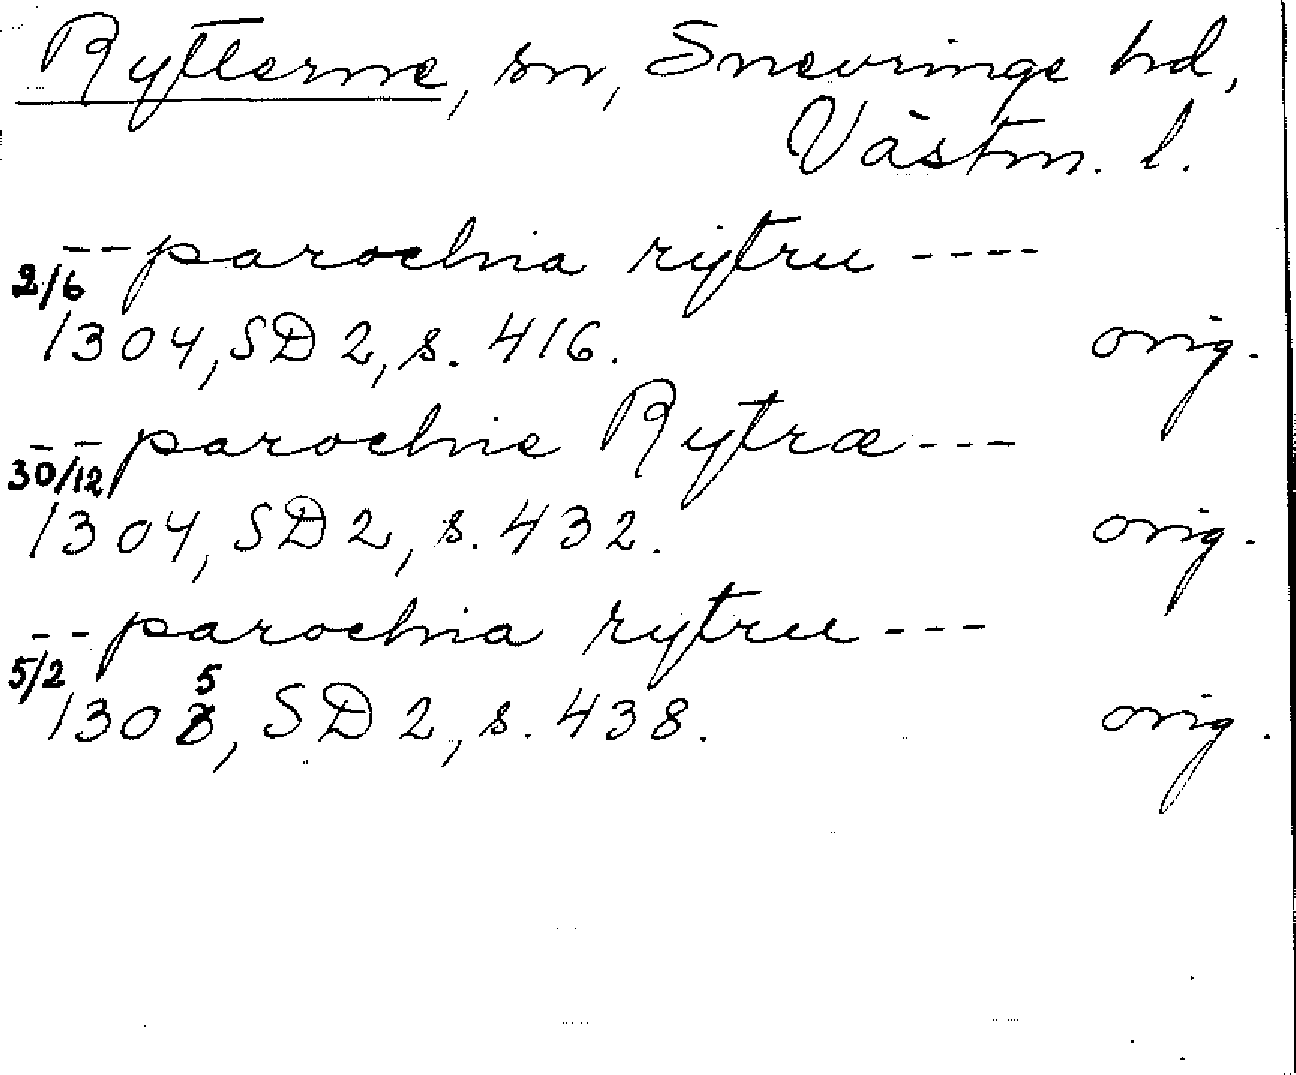 Rytterne, sn, Snevringe hd,
Västm. l.
--parochia rytru----
2/6
1304, SD 2, s. 416. orig.
--parochie Rytræ---
30/12
1304, SD 2, s. 432. orig.
--parochia rytru---
5/2 5
130, SD 2, s. 438. orig.